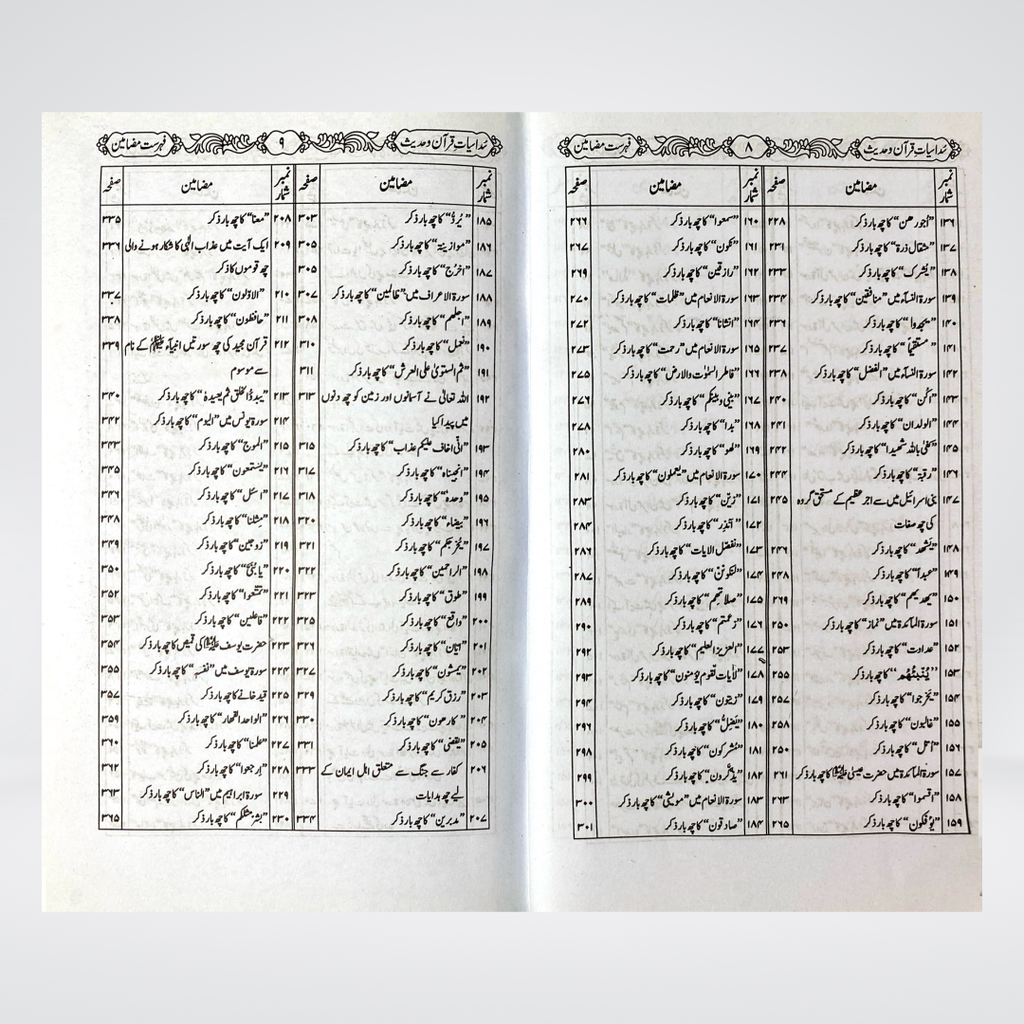 سُداسیاتِ قرآن وحدیث ۸ فہرست مضامین
نمبر شمار مضامین صفحہ نمبر شمار مضامین صفحہ
۱۳۶ ”أجورهن“ کا چھ بار ذکر ۲۲۸
۱۳۷ ”مثقال ذرة“ کا چھ بار ذکر ۲۳۱
۱۳۸ ”یشرک“ کا چھ بار ذکر ۲۳۳
۱۳۹ سورۃ النسآء میں ”منافقین“ کا چھ بار ذکر ۲۳۴
۱۴۰ ”یجدوا“ کا چھ بار ذکر ۲۳۶
۱۴۱ ”مستقیماً“ کا چھ بار ذکر ۲۳۷
۱۴۲ سورۃ النسآء میں ”الفضل“ کا چھ بار ذکر ۲۳۸
۱۴۳ ”أکُن“ کا چھ بار ذکر ۲۴۰
۱۴۴ ”الولدان“ کا چھ بار ذکر ۲۴۱
۱۴۵ ”کفیٰ باللہ شھیدا“ کا چھ بار ذکر ۲۴۲
۱۴۶ ”رقبة“ کا چھ بار ذکر ۲۴۴
۱۴۷ بنی اسرائیل میں سے اجر عظیم کے مستحق گروہ ۲۴۵
کی چھ صفات
۱۴۸ ”یشھد“ کا چھ بار ذکر ۲۴۶
۱۴۹ ”عبدا“ کا چھ بار ذکر ۲۴۸
۱۵۰ ”یھدیھم“ کا چھ بار ذکر ۲۶۹
۱۵۱ سورۃ المآئدۃ میں ”نماز“ کا چھ بار ذکر ۲۵۰
۱۵۲ ”عداوت“ کا چھ بار ذکر ۲۵۳
۱۵۳ ”یُنَبِّئُهُم“ کا چھ بار ذکر ۲۵۵
۱۵۴ ”یخرجوا“ کا چھ بار ذکر ۲۵۷
۱۵۵ ”غالبون“ کا چھ بار ذکر ۲۵۸
۱۵۶ ”أحل“ کا چھ بار ذکر ۲۵۰
۱۵۷ سورۃ المآئدۃ میں حضرت عیسیٰ علیہ السلام کا چھ بار ذکر ۲۶۱
۱۵۸ ”أقسموا“ کا چھ بار ذکر ۲۶۳
۱۵۹ ”یؤفکون“ کا چھ بار ذکر ۲۶۵
۱۶۰ ”سمعوا“ کا چھ بار ذکر ۲۶۶
۱۶۱ ”تکون“ کا چھ بار ذکر ۲۶۷
۱۶۲ ”رازقین“ کا چھ بار ذکر ۲۶۹
۱۶۳ سورۃ الانعام میں ”ظلمات“ کا چھ بار ذکر ۲۷۰
۱۶۴ ”أنشأنا“ کا چھ بار ذکر ۲۷۲
۱۶۵ سورۃ الانعام میں ”رحمت“ کا چھ بار ذکر ۲۷۳
۱۶۶ ”فاطر السمٰوٰت والارض“ کا چھ بار ذکر ۲۷۵
۱۶۷ ”بینی وبینکم“ کا چھ بار ذکر ۲۷۶
۱۶۸ ”بدا“ کا چھ بار ذکر ۲۷۸
۱۶۹ ”لھو“ کا چھ بار ذکر ۲۸۰
۱۷۰ سورۃ الانعام میں ”یعملون“ کا چھ بار ذکر ۲۸۱
۱۷۱ ”زین“ کا چھ بار ذکر ۲۸۳
۱۷۲ ”أنذر“ کا چھ بار ذکر ۲۸۴
۱۷۳ ”نفصل الآیات“ کا چھ بار ذکر ۲۸۶
۱۷۴ ”لتکونن“ کا چھ بار ذکر ۲۸۷
۱۷۵ ”صلاتھم“ کا چھ بار ذکر ۲۸۹
۱۷۶ ”زعمتم“ کا چھ بار ذکر ۲۹۰
۱۷۷ ”العزیز العلیم“ کا چھ بار ذکر ۲۹۲
۱۷۸ ”لآیات لقوم یؤمنون“ کا چھ بار ذکر ۲۹۳
۱۷۹ ”زیتون“ کا چھ بار ذکر ۲۹۴
۱۸۰ ”یُضِلّ“ کا چھ بار ذکر ۲۹۶
۱۸۱ ”مشرکون“ کا چھ بار ذکر ۲۹۸
۱۸۲ ”یذّکّرون“ کا چھ بار ذکر ۲۹۹
۱۸۳ سورۃ الانعام میں ”مویشی“ کا چھ بار ذکر ۳۰۰
۱۸۴ ”صادقون“ کا چھ بار ذکر ۳۰۱
سُداسیاتِ قرآن وحدیث ۹ فہرست مضامین
نمبر شمار مضامین صفحہ نمبر شمار مضامین صفحہ
۱۸۵ ”یُرَدُّ“ کا چھ بار ذکر ۳۰۳
۱۸۶ ”موازینه“ کا چھ بار ذکر ۳۰۵
۱۸۷ ”أخرج“ کا چھ بار ذکر ۳۰۵
۱۸۸ سورۃ الاعراف میں ”ظالمین“ کا چھ بار ذکر ۳۰۷
۱۸۹ ”أجلھم“ کا چھ بار ذکر ۳۰۸
۱۹۰ ”نعمل“ کا چھ بار ذکر ۳۱۰
۱۹۱ ”ثم استویٰ علی العرش“ کا چھ بار ذکر ۳۱۱
۱۹۲ اللہ تعالیٰ نے آسمانوں اور زمین کو چھ دنوں ۳۱۳
میں پیدا کیا
۱۹۳ ”انّی اخاف علیکم عذاب“ کا چھ بار ذکر ۳۱۵
۱۹۴ ”أنجیناه“ کا چھ بار ذکر ۳۱۷
۱۹۵ ”وحدہ“ کا چھ بار ذکر ۳۱۸
۱۹۶ ”بیضاء“ کا چھ بار ذکر ۳۲۰
۱۹۷ ”یخرجکم“ کا چھ بار ذکر ۳۲۱
۱۹۸ ”الراحمین“ کا چھ بار ذکر ۳۲۲
۱۹۹ ”طوق“ کا چھ بار ذکر ۳۲۳
۲۰۰ ”واقع“ کا چھ بار ذکر ۳۲۵
۲۰۱ ”أیان“ کا چھ بار ذکر ۳۲۶
۲۰۲ ”یمشون“ کا چھ بار ذکر ۳۲۷
۲۰۳ ”رزق کریم“ کا چھ بار ذکر ۳۲۹
۲۰۴ ”کارھون“ کا چھ بار ذکر ۳۳۰
۲۰۵ ”یقضی“ کا چھ بار ذکر ۳۳۱
۲۰۶ کفار سے جنگ سے متعلق اہل ایمان کے ۳۳۳
لیے چھ ہدایات
۲۰۷ ”مدبرین“ کا چھ بار ذکر ۳۳۴
۲۰۸ ”معنا“ کا چھ بار ذکر ۳۳۵
۲۰۹ ایک آیت میں عذاب الٰہی کا شکار ہونے والی ۳۳۶
چھ قوموں کا ذکر
۲۱۰ ”الاوّلون“ کا چھ بار ذکر ۳۳۷
۲۱۱ ”حافظون“ کا چھ بار ذکر ۳۳۸
۲۱۲ قرآن مجید کی چھ سورتیں انبیآء علیہم السلام کے نام ۳۳۹
سے موسوم
۲۱۳ ”یبدؤا الخلق ثم یعیدہ“ کا چھ بار ذکر ۳۴۰
۲۱۴ سورۃ یونس میں ”الیوم“ کا چھ بار ذکر ۳۴۲
۲۱۵ ”الموج“ کا چھ بار ذکر ۳۴۳
۲۱۶ ”یستمعون“ کا چھ بار ذکر ۳۴۵
۲۱۷ ”أسئل“ کا چھ بار ذکر ۳۴۶
۲۱۸ ”مثلنا“ کا چھ بار ذکر ۳۴۸
۲۱۹ ”زوجین“ کا چھ بار ذکر ۳۴۹
۲۲۰ ”یا بُنَیَّ“ کا چھ بار ذکر ۳۵۰
۲۲۱ ”تمتعوا“ کا چھ بار ذکر ۳۵۲
۲۲۲ ”فاعلین“ کا چھ بار ذکر ۳۵۳
۲۲۳ حضرت یوسف علیہ السلام کی قمیص کا چھ بار ذکر ۳۵۴
۲۲۴ سورۃ یوسف میں ”نفسہ“ کا چھ بار ذکر ۳۵۵
۲۲۵ قید خانے کا چھ بار ذکر ۳۵۷
۲۲۶ ”الواحد القھار“ کا چھ بار ذکر ۳۵۹
۲۲۷ ”علمنا“ کا چھ بار ذکر ۳۶۰
۲۲۸ ”ارجعوا“ کا چھ بار ذکر ۳۶۲
۲۲۹ سورۃ ابراہیم میں ”الناس“ کا چھ بار ذکر ۳۶۳
۲۳۰ ”بشر مثلکم“ کا چھ بار ذکر ۳۶۵